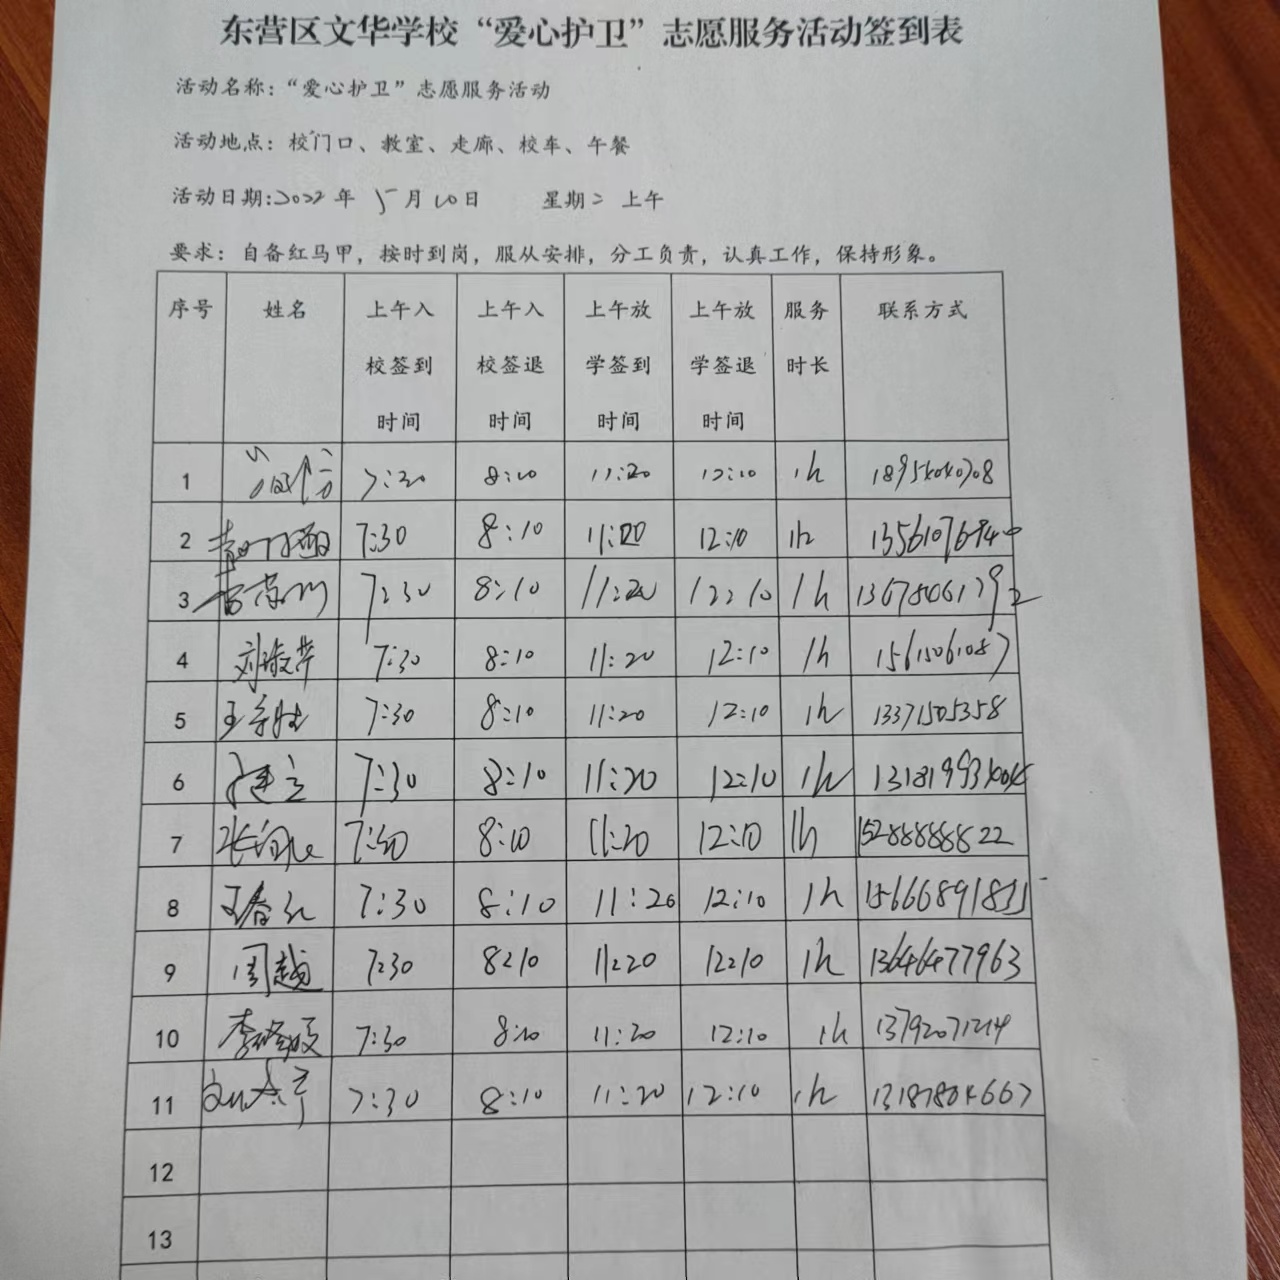 东营区文华学校“爱心护卫”志愿服务活动签到表
活动名称：“爱心护卫”志愿服务活动
活动地点：校门口、教室、走廊、校车、午餐
活动日期:2022年 5月10日 星期二 上午
要求：自备红马甲，按时到岗，服从安排，分工负责，认真工作，保持形象。
序号 姓名 上午入校签到时间 上午入校签退时间 上午放学签到时间 上午放学签退时间 服务时长 联系方式
1 7:30 8:10 11:20 12:10 1h
2 7:30 8:10 11:20 12:10 1h
3 7:30 8:10 11:20 12:10 1h
4 刘淑芹 7:30 8:10 11:20 12:10 1h 15615061087
5 7:30 8:10 11:20 12:10 1h 13371505358
6 7:30 8:10 11:20 12:10 1h
7 7:30 8:10 11:20 12:10 1h 15288888822
8 王春红 7:30 8:10 11:20 12:10 1h
9 周越 7:30 8:10 11:20 12:10 1h 13646477963
10 7:30 8:10 11:20 12:10 1h 13792071214
11 7:30 8:10 11:20 12:10 1h 13187804667
12
13